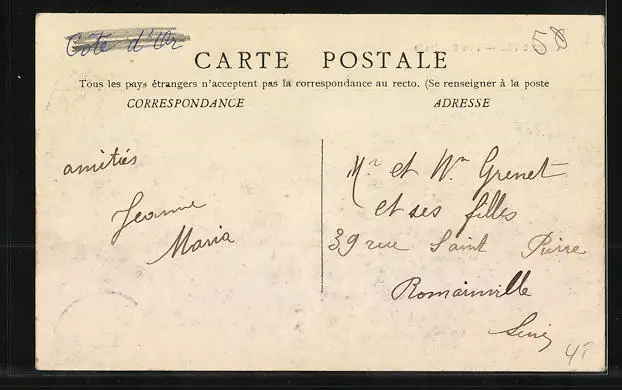 Côte d'Or
58
CARTE POSTALE
Tous les pays étrangers n'acceptent pas la correspondance au recto. (Se renseigner à la poste
CORRESPONDANCE
ADRESSE
amitiés
Jeanne
Maria
Mr et Mm Grenet
et ses filles
39 rue Saint Pierre
Romainville
Seine